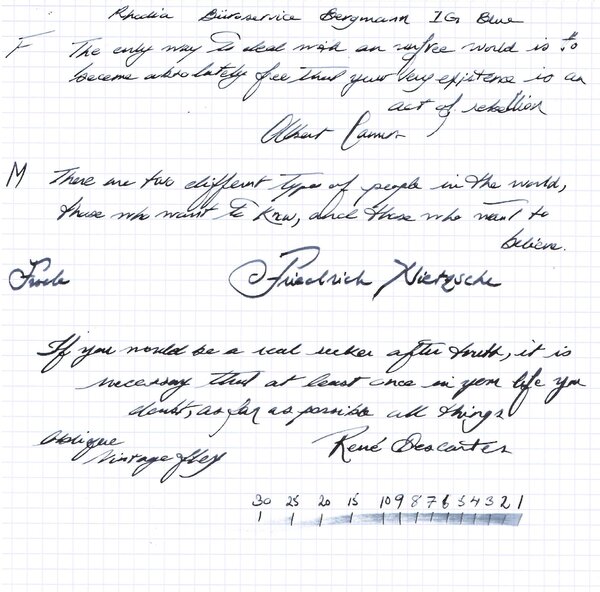 Rhodia Büroservice Bergmann IG Blue
F The only way to deal with an unfree world is to
become absolutely free that your very existence is an
act of rebellion
Albert Camus
M There are two different types of people in the world,
those who want to know, and those who want to
believe.
Friedrich Nietzsche
If you would be a real seeker after truth, it is
necessary that at least once in your life you
doubt, as far as possible all things
oblique René Descartes
Vintage flex
30 25 20 15 10 9 8 7 6 5 4 3 2 1